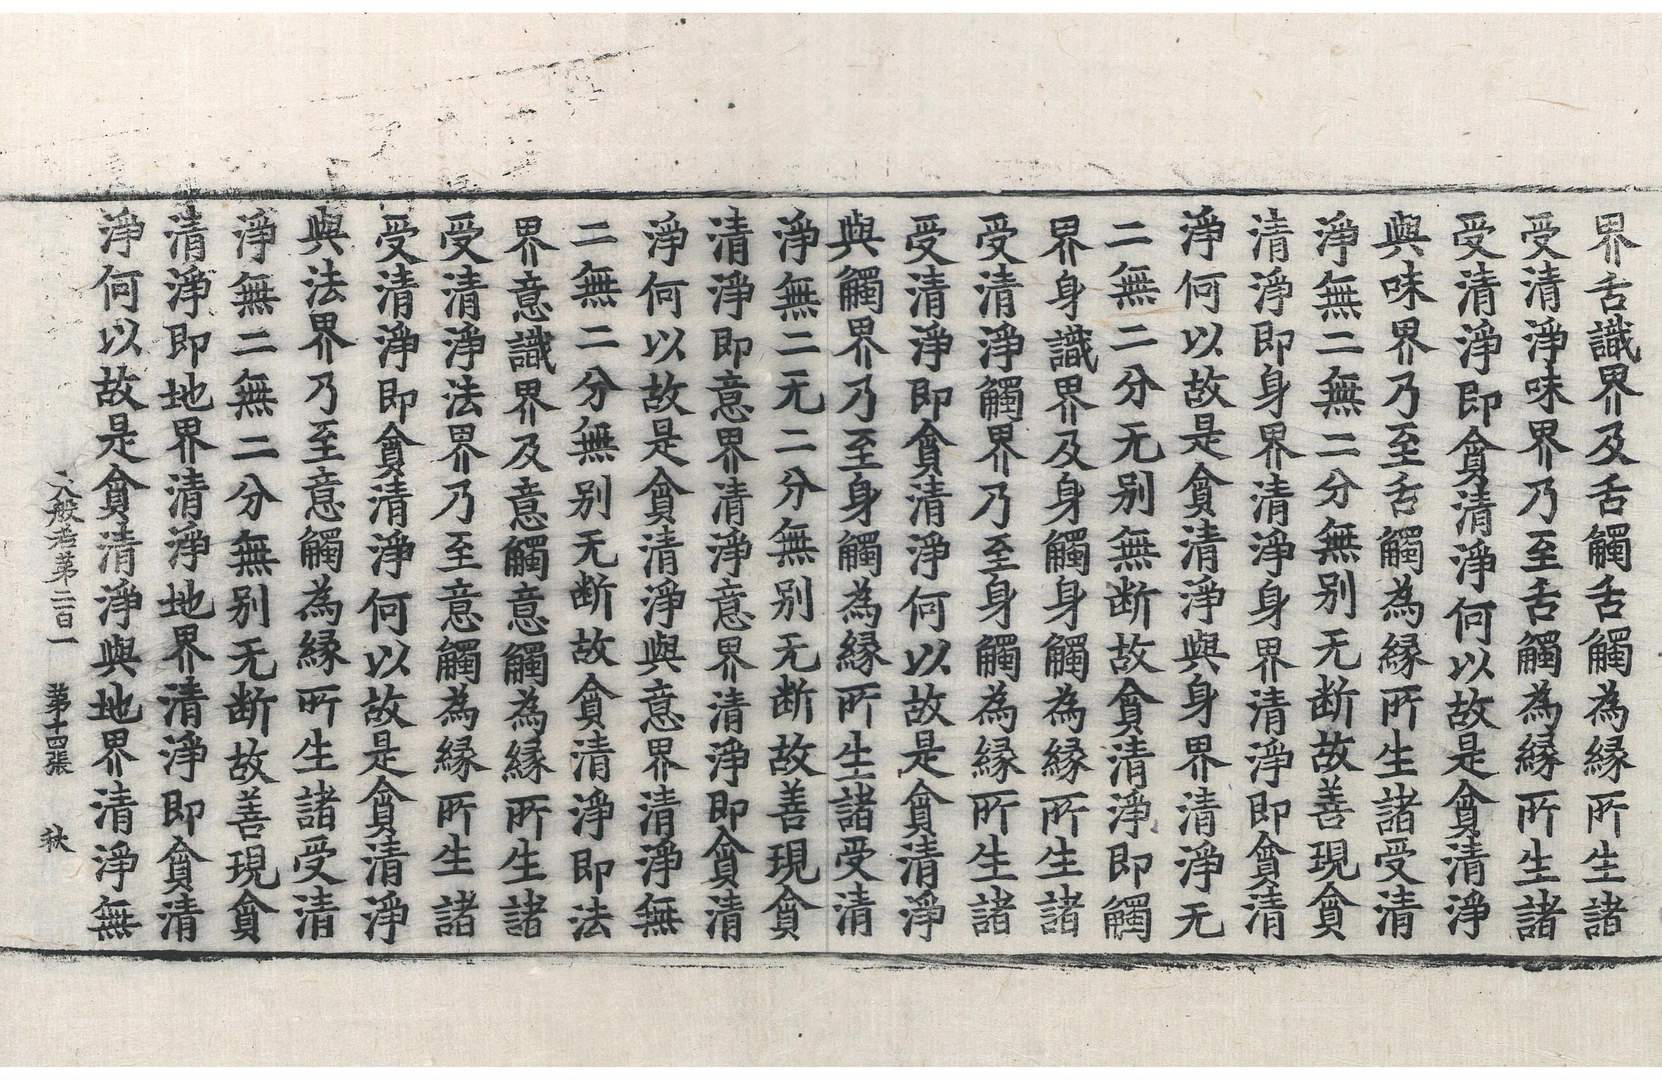 界舌識界及舌觸舌觸為縁所生諸
受清淨味界乃至舌觸為縁所生諸
受清淨即貪清淨何以故是貪清淨
與味界乃至舌觸為縁所生諸受清
淨無二無二分無別无断故善現貪
清淨即身界清淨身界清淨即貪清
淨何以故是貪清淨與身界清淨无
二無二分无別無断故貪清淨即觸
界身識界及身觸身觸為縁所生諸
受清淨觸界乃至身觸為縁所生諸
受清淨即貪清淨何以故是貪清淨
與觸界乃至身觸為縁所生諸受清
淨無二无二分無別无断故善現貪
清淨即意界清淨意界清淨即貪清
淨何以故是貪清淨與意界清淨無
二無二分無別无断故貪清淨即法
界意識界及意觸意觸為縁所生諸
受清淨法界乃至意觸為縁所生諸
受清淨即貪清淨何以故是貪清淨
與法界乃至意觸為縁所生諸受清
淨無二無二分無別无断故善現貪
清淨即地界清淨地界清淨即貪清
淨何以故是貪清淨與地界清淨無
大般若第二百一 第十四張 秋